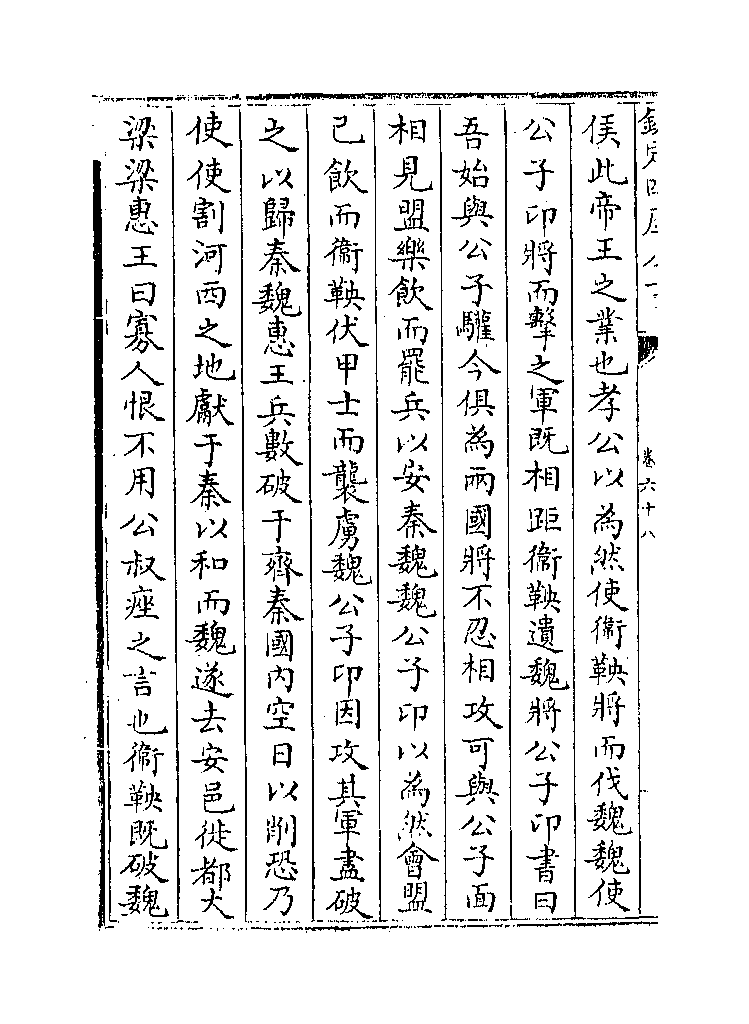 卷六十八
侯此帝王之業也孝公以為然使衞鞅將而伐魏魏使
公子卬將而擊之軍既相距衞鞅遺魏將公子卬書曰
吾始與公子驩今俱為兩國將不忍相攻可與公子面
相見盟樂飲而罷兵以安秦魏魏公子卬以為然會盟
已飲而衞鞅伏甲士而襲虜魏公子卬因攻其軍盡破
之以歸秦魏惠王兵數破于齊秦國内空日以削恐乃
使使割河西之地獻于秦以和而魏遂去安邑徙都大
梁梁惠王曰寡人恨不用公叔痤之言也衞鞅既破魏